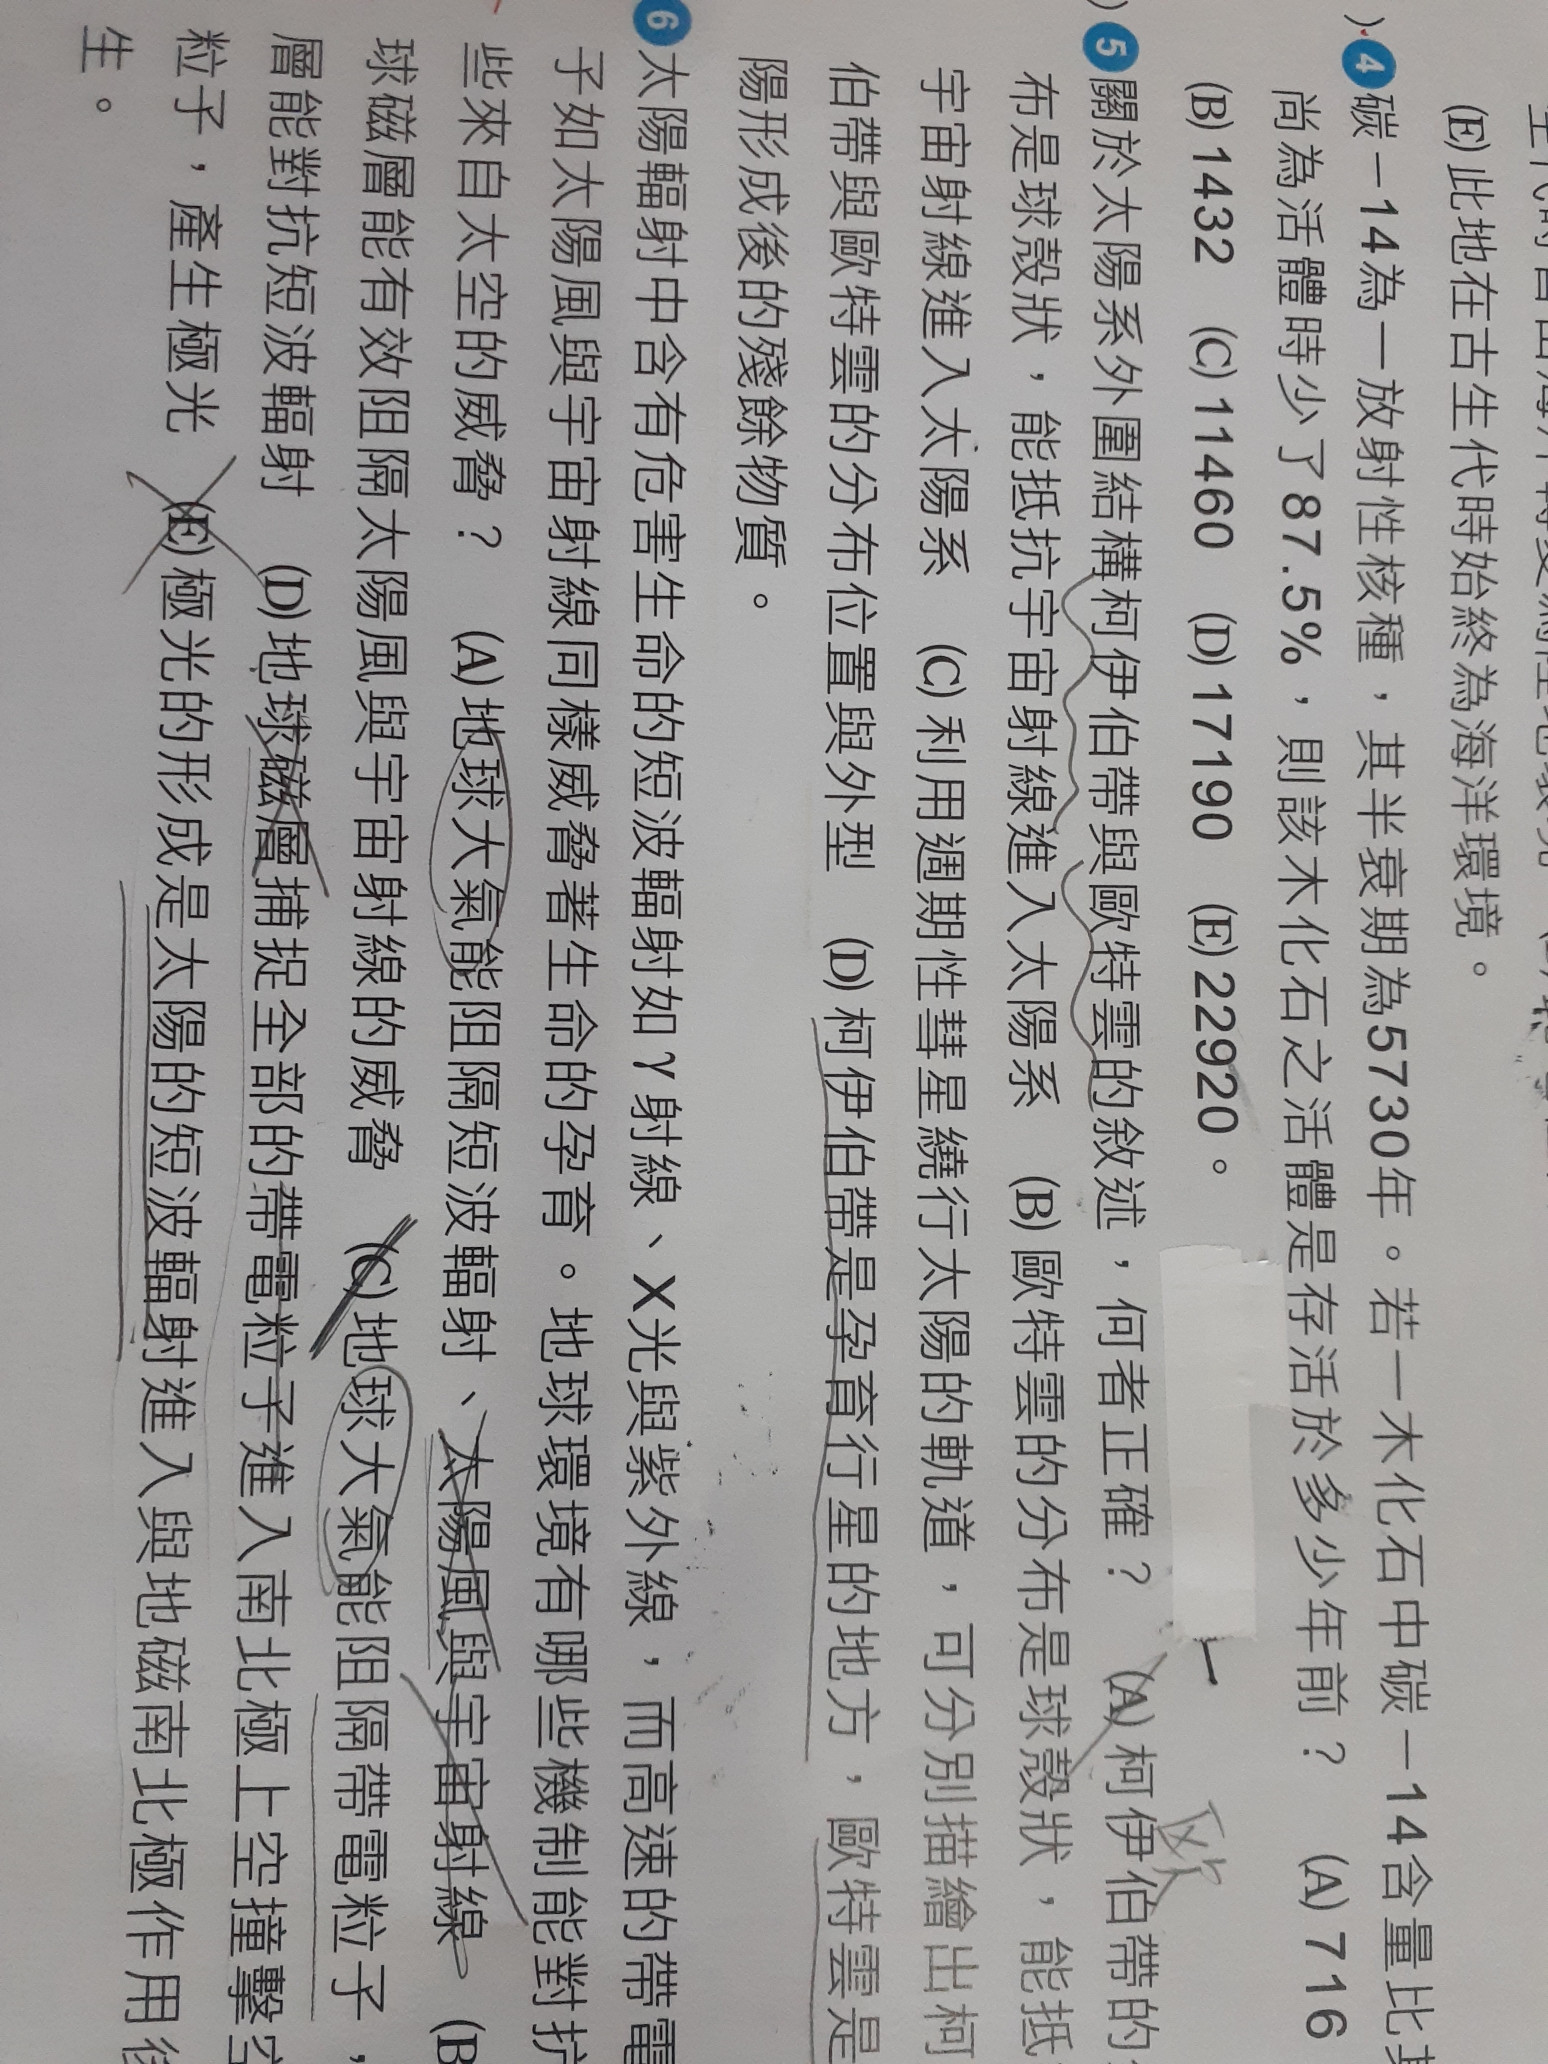 (E)此地在古生代時始終為海洋環境。
)4 碳－14為一放射性核種，其半衰期為5730年。若一木化石中碳－14含量比其
尚為活體時少了87.5%，則該木化石之活體是存活於多少年前？ (A)716
(B)1432 (C)11460 (D)17190 (E)22920。
)5 關於太陽系外圍結構柯伊伯帶與歐特雲的敘述，何者正確？ (A)柯伊伯帶的
歐
布是球殼狀，能抵抗宇宙射線進入太陽系 (B)歐特雲的分布是球殼狀，能抵
宇宙射線進入太陽系 (C)利用週期性彗星繞行太陽的軌道，可分別描繪出柯
伯帶與歐特雲的分布位置與外型 (D)柯伊伯帶是孕育行星的地方，歐特雲是
陽形成後的殘餘物質。
6 太陽輻射中含有危害生命的短波輻射如γ射線、X光與紫外線，而高速的帶電
子如太陽風與宇宙射線同樣威脅著生命的孕育。地球環境有哪些機制能對抗
些來自太空的威脅？ (A)地球大氣能阻隔短波輻射、太陽風與宇宙射線 (B
球磁層能有效阻隔太陽風與宇宙射線的威脅 (C)地球大氣能阻隔帶電粒子，
層能對抗短波輻射 (D)地球磁層捕捉全部的帶電粒子進入南北極上空撞擊空
粒子，產生極光 (E)極光的形成是太陽的短波輻射進入與地磁南北極作用後
生。